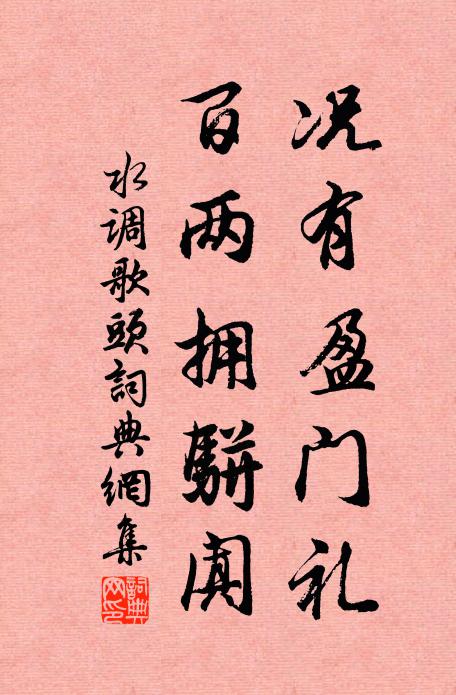 况有盈门礼
百两拥駢阗
水调歌頭詞典網集
詞典网印